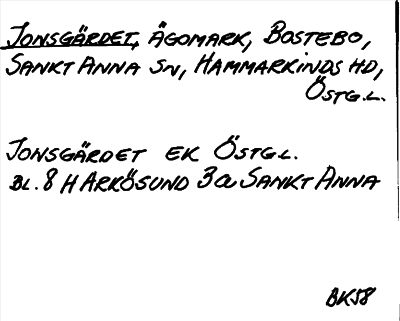 JONSGÄRDET, ÄGOMARK, BOSTEBO,
SANKT ANNA SN, HAMMARKINDS HD,
ÖSTG.L.
JONSGÄRDET EK ÖSTGL.
BL. 8 H ARKÖSUND 3a SANKT ANNA
BK58